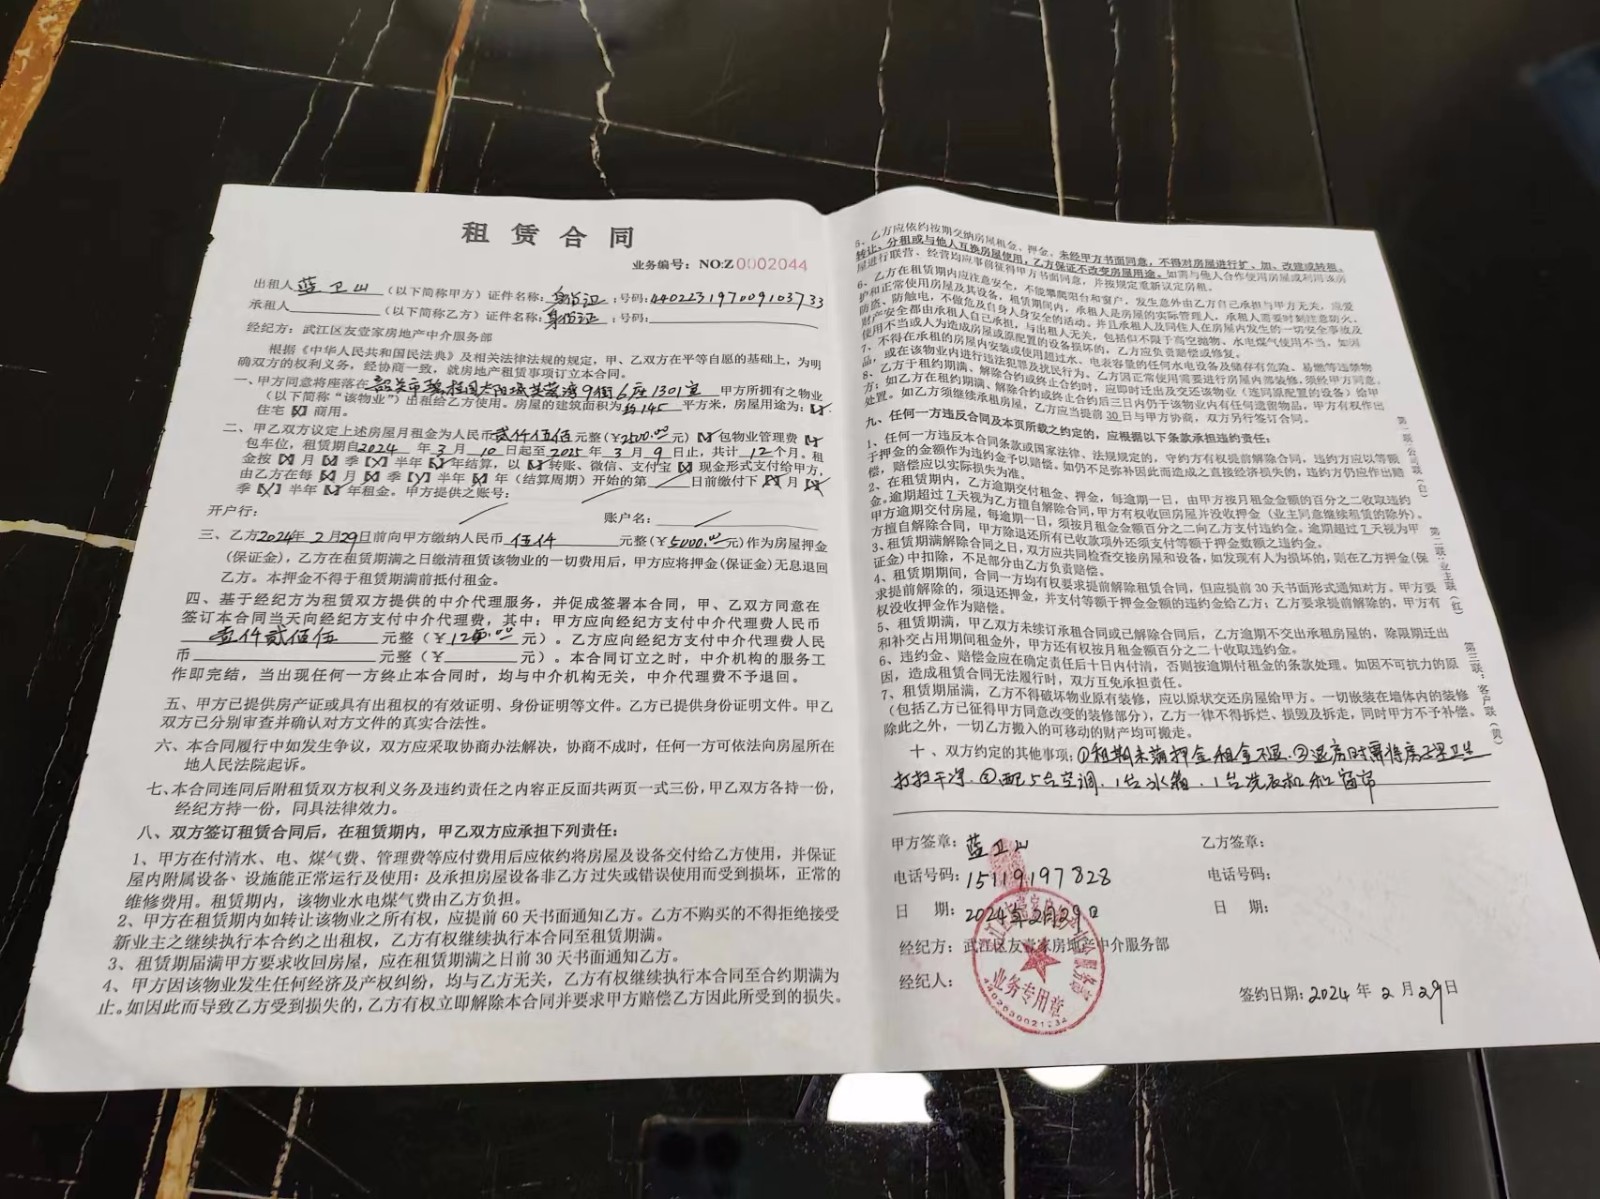 租赁合同
业务编号：NO:Z0002044
出租人蓝卫山（以下简称甲方）证件名称：身份证；号码：440223197009103733
承租人（以下简称乙方）证件名称：身份证；号码：
经纪方：武江区友壹家房地产中介服务部
根据《中华人民共和国民法典》及相关法律法规的规定，甲、乙双方在平等自愿的基础上，为明
确双方的权利义务，经协商一致，就房地产租赁事项订立本合同。
一、甲方同意将座落在韶关市碧桂园太阳城芙蓉湾9街6座1301室 甲方所拥有之物业
（以下简称“该物业”）出租给乙方使用。房屋的建筑面积为145平方米，房屋用途为：
住宅 商用。
二、甲乙双方议定上述房屋月租金为人民币贰仟伍佰元整（¥2500.00元）包物业管理费
包车位，租赁期自2024年3月10日起至2025年3月9日止，共计12个月。租
金按 月 季 半年 年结算，以 转账、微信、支付宝 现金形式支付给甲方，
由乙方在每 月 季 半年 年（结算周期）开始的第 日前缴付下 月
季 半年 年租金。甲方提供之账号：
开户行： 账户名：
三、乙方2024年2月29日前向甲方缴纳人民币伍仟元整（¥5000.00元）作为房屋押金
（保证金），乙方在租赁期满之日缴清租赁该物业的一切费用后，甲方应将押金（保证金）无息退回
乙方。本押金不得于租赁期满前抵付租金。
四、基于经纪方为租赁双方提供的中介代理服务，并促成签署本合同，甲、乙双方同意在
签订本合同当天向经纪方支付中介代理费，其中：甲方应向经纪方支付中介代理费人民币
壹仟贰佰伍 元整（¥ 元）。乙方应向经纪方支付中介代理费人民
币 元整（¥ 元）。本合同订立之时，中介机构的服务工
作即完结，当出现任何一方终止本合同时，均与中介机构无关，中介代理费不予退回。
五、甲方已提供房产证或具有出租权的有效证明、身份证明等文件。乙方已提供身份证明文件。甲乙
双方已分别审查并确认对方文件的真实合法性。
六、本合同履行中如发生争议，双方应采取协商办法解决，协商不成时，任何一方可依法向房屋所在
地人民法院起诉。
七、本合同连同后附租赁双方权利义务及违约责任之内容正反面共两页一式三份，甲乙双方各持一份，
经纪方持一份，同具法律效力。
八、双方签订租赁合同后，在租赁期内，甲乙双方应承担下列责任：
1、甲方在付清水、电、煤气费、管理费等应付费用后应依约将房屋及设备交付给乙方使用，并保证
屋内附属设备、设施能正常运行及使用；及承担房屋设备非乙方过失或错误使用而受到损坏，正常的
维修费用。租赁期内，该物业水电煤气费由乙方负担。
2、甲方在租赁期内如转让该物业之所有权，应提前60天书面通知乙方。乙方不购买的不得拒绝接受
新业主之继续执行本合约之出租权，乙方有权继续执行本合同至租赁期满。
3、租赁期届满甲方要求收回房屋，应在租赁期满之日前30天书面通知乙方。
4、甲方因该物业发生任何经济及产权纠纷，均与乙方无关，乙方有权继续执行本合同至合约期满为
止。如因此而导致乙方受到损失的，乙方有权立即解除本合同并要求甲方赔偿乙方因此所受到的损失。
5、乙方应依约按期交纳房屋租金、押金，未经甲方书面同意，不得对房屋进行扩、加、改建或转租、
转让、分租或与他人互换房屋使用，乙方保证不改变房屋用途。如需与他人合作使用房屋或利用该房
屋进行联营、经营均应事前征得甲方书面同意，并按规定重新议定房租。
6、乙方在租赁期内应注意安全，不能攀爬阳台和窗户，发生意外由乙方自己承担与甲方无关，应爱
护和正常使用房屋及其设备，租赁期间内，承租人是房屋的实际管理人，承租人需要时刻注意防火、
防盗、防触电，不做危及自身人身安全的活动，并且承租人及同住人在房屋内发生的一切安全事故及
财产安全都由承租人自己承担，与出租人无关，包括但不限于高空抛物、水电煤气使用不当，如因
使用不当或人为造成房屋或原配置的设备损坏的，乙方应负责赔偿或修复。
7、不得在承租的房屋内安装或使用超过水、电表容量的任何水电设备及储存有危险、易燃等违禁物
品，或在该物业内进行违法犯罪及扰民行为。乙方因正常使用需要进行房屋内部装修，须经甲方同意。
8、乙方于租约期满、解除合约或终止合约时，应即时迁出及交还该物业（连同原配置的设备）给甲
方；如乙方在租约期满、解除合约或终止合约后三日内仍于该物业内有任何遗留物品，甲方有权作出
处置。如乙方须继续承租房屋，乙方应当提前30日与甲方协商，双方另行签订合同。
九、任何一方违反合同及本页所载之约定的，应根据以下条款承担违约责任：
1、任何一方违反本合同条款或国家法律、法规规定的，守约方有权提前解除合同，违约方应以等额
于押金的金额作为违约金予以赔偿。如仍不足弥补因此而造成之直接经济损失的，违约方仍应作出赔
偿，赔偿应以实际损失为准。
2、在租赁期内，乙方逾期交付租金、押金，每逾期一日，由甲方按月租金金额的百分之二收取违约
金。逾期超过7天视为乙方擅自解除合同，甲方有权收回房屋并没收押金（业主同意继续租赁的除外）。
甲方逾期交付房屋，每逾期一日，须按月租金金额百分之二向乙方支付违约金。逾期超过7天视为甲
方擅自解除合同，甲方除退还所有已收款项外还须支付等额于押金数额之违约金。
3、租赁期满解除合同之日，双方应共同检查交接房屋和设备，如发现有人为损坏的，则在乙方押金（保
证金）中扣除，不足部分由乙方负责赔偿。
4、租赁期期间，合同一方均有权要求提前解除租赁合同，但应提前30天书面形式通知对方。甲方要
求提前解除的，须退还押金，并支付等额于押金金额的违约金给乙方；乙方要求提前解除的，甲方有
权没收押金作为赔偿。
5、租赁期满，甲乙双方未续订承租合同或已解除合同后，乙方逾期不交出承租房屋的，除限期迁出
和补交占用期间租金外，甲方还有权按月租金额百分之二十收取违约金。
6、违约金、赔偿金应在确定责任后十日内付清，否则按逾期付租金的条款处理。如因不可抗力的原
因，造成租赁合同无法履行时，双方互免承担责任。
7、租赁期届满，乙方不得破坏物业原有装修，应以原状交还房屋给甲方。一切嵌装在墙体内的装修
（包括乙方已征得甲方同意改变的装修部分），乙方一律不得拆烂、损毁及拆走，同时甲方不予补偿。
除此之外，一切乙方搬入的可移动的财产均可搬走。
十、双方约定的其他事项：①租期未满押金租金不退。②退房时需将房子里卫生
打扫干净。③配5台空调、1台冰箱、1台洗衣机和窗帘
甲方签章：蓝卫山 乙方签章：
电话号码：15119197828 电话号码：
日 期：2024年2月29日 日 期：
经纪方：武江区友壹家房地产中介服务部
经纪人：
业务专用章
签约日期：2024年2月29日
第一联：公司联（白）
第二联：业主联（红）
第三联：客户联（黄）